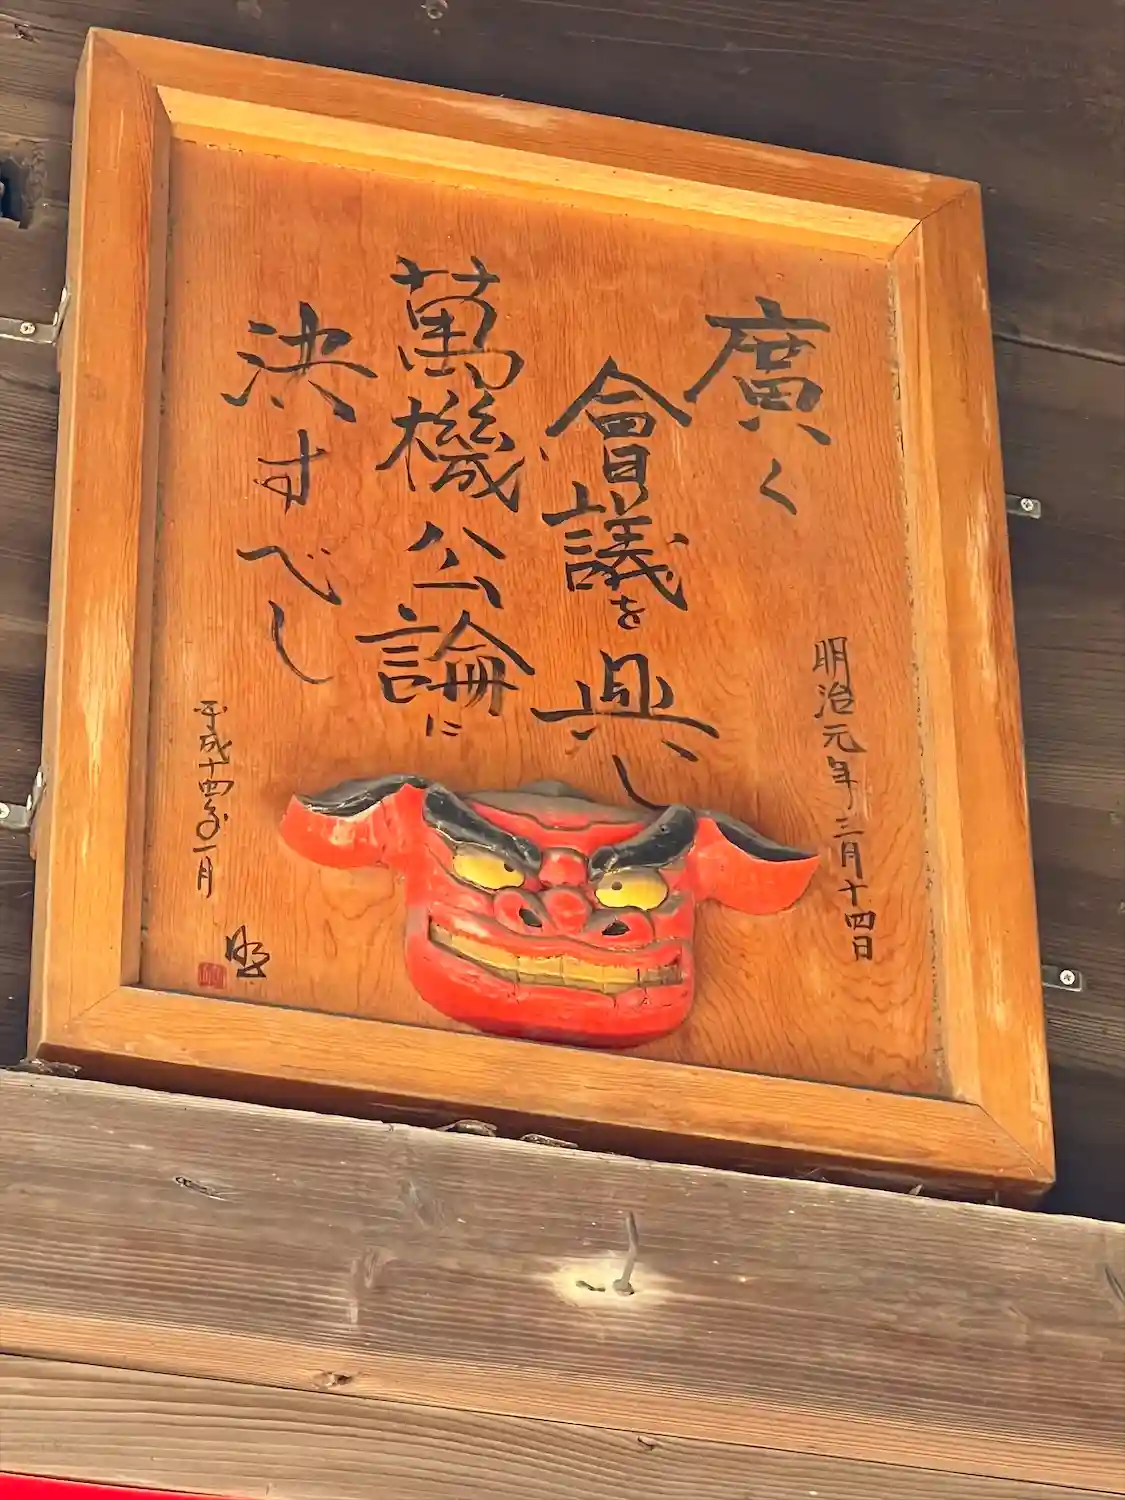 明治元年三月十四日
廣く
會議を興し
萬機公論に
決すべし
平成十四年一月